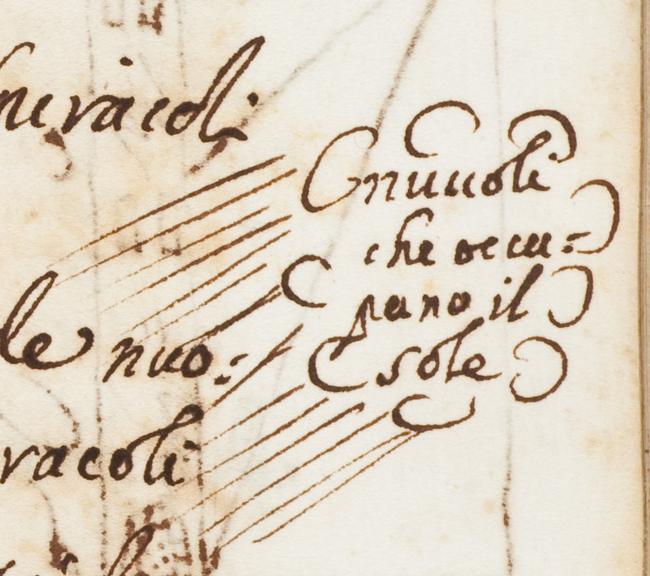 miracoli
nuuoli
che occu=
pano il
sole
le nuo=
racoli